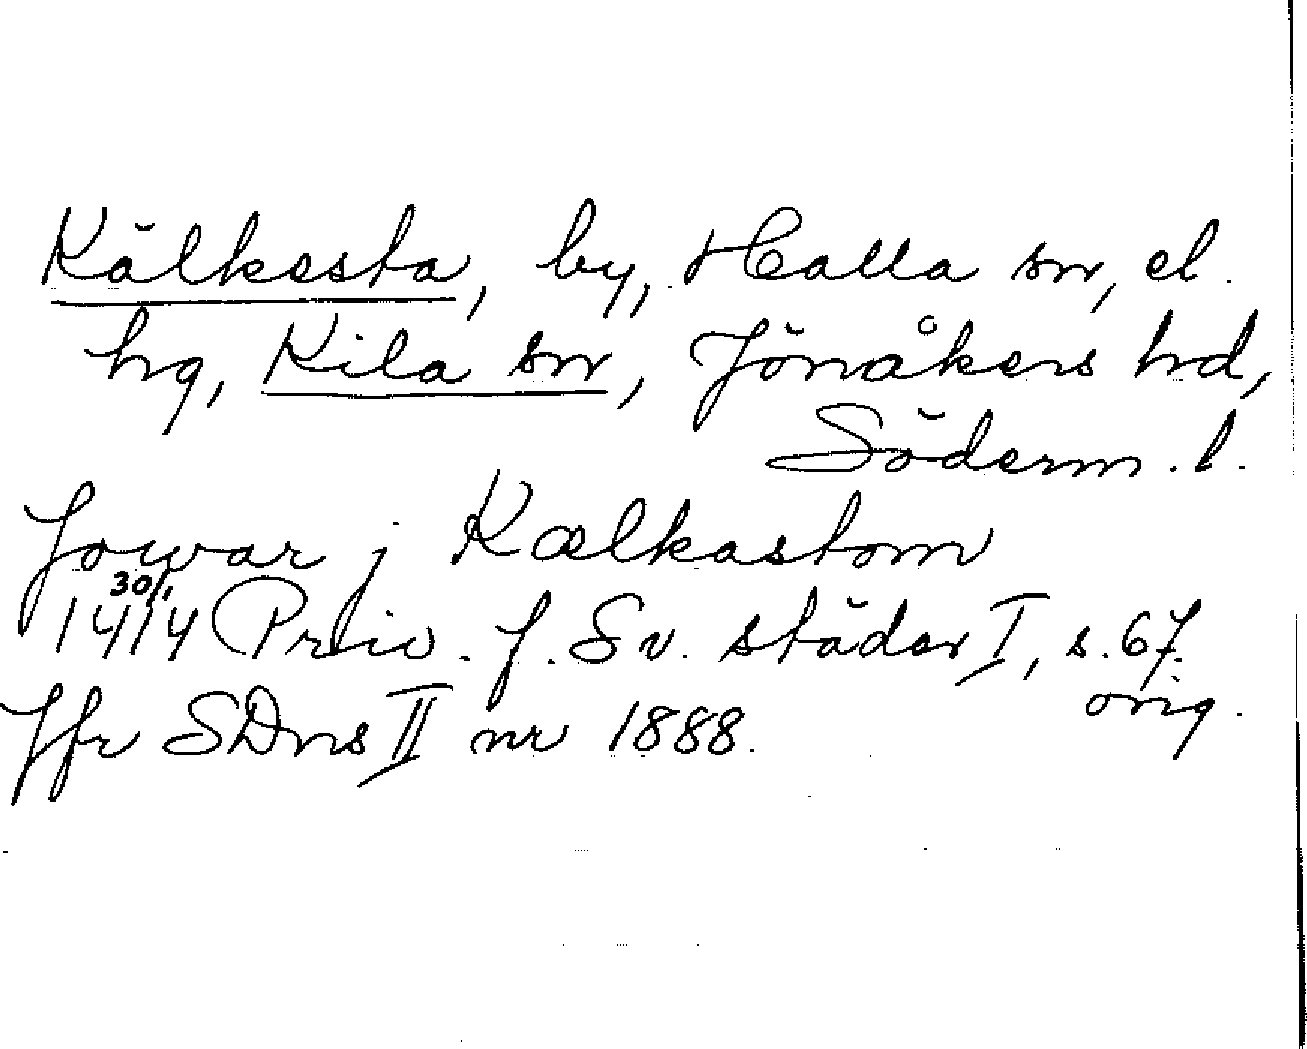 Kälkesta, by, Halla sn, el.
hg, Kila sn, Jönåkers hd,
Söderm. l.
Jowar j Kælkastom
1414 30/1 Priv. f. Sv. städer I, s. 67.
orig.
Jfr SDns II nr 1888.